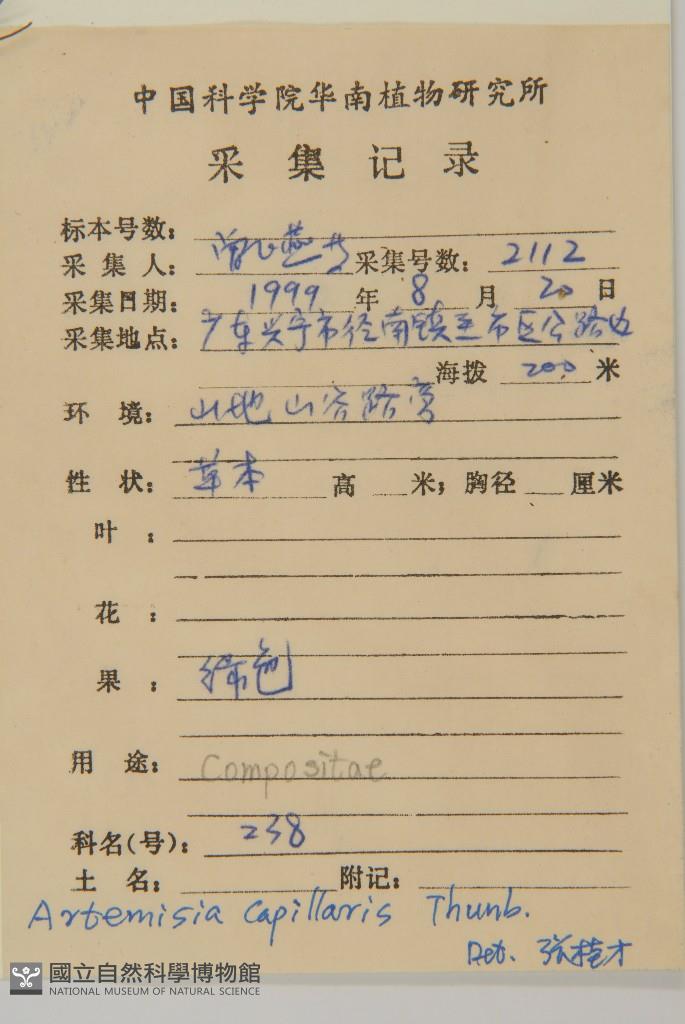 中国科学院华南植物研究所
采集记录
标本号数:
采集人: 曾飞燕 采集号数: 2112
采集日期: 1999 年 8 月 20 日
采集地点: 广东兴宁市径南镇至市区公路边
海拨 200 米
环境: 山地山谷路旁
性状: 草本 高 米; 胸径 厘米
叶:
花:
果: 绿色
用途: Compositae
科名(号): 238
土名: 附记:
Artemisia Capillaris Thunb.
Det. 张桂才
國立自然科學博物館
NATIONAL MUSEUM OF NATURAL SCIENCE